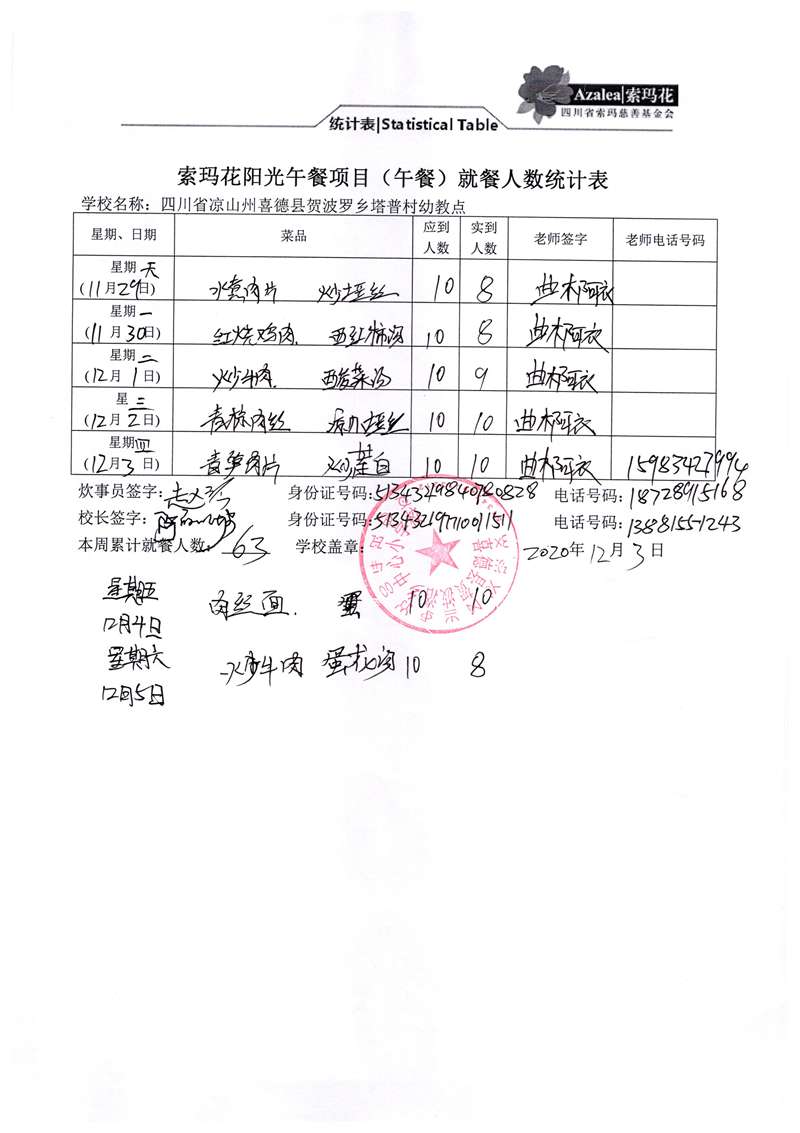 Azalea|索玛花
四川省索玛慈善基金会
统计表|Statistical Table
索玛花阳光午餐项目（午餐）就餐人数统计表
学校名称：四川省凉山州喜德县贺波罗乡塔普村幼教点
星期、日期 菜品 应到人数 实到人数 老师签字 老师电话号码
星期天
(11月29日) 水煮肉片 炒土豆丝 10 8 曲木阿衣
星期一
(11月30日) 红烧鸡肉 西红柿汤 10 8 曲木阿衣
星期二
(12月1日) 炒牛肉 酸菜汤 10 9 曲木阿衣
星 三
(12月2日) 青椒肉丝 10 10 曲木阿衣
星期四
(12月3日) 青笋肉片 炒莲白 10 10 曲木阿衣 15983427994
炊事员签字: 身份证号码:513432198407080828 电话号码: 18728915168
校长签字: 身份证号码:513432197710011511 电话号码: 13881551243
本周累计就餐人数: 63 学校盖章: 2020年12月3日
星期五 肉丝面. 蛋 10 10
12月4日
星期六 炒牛肉 蛋花汤 10 8
12月5日